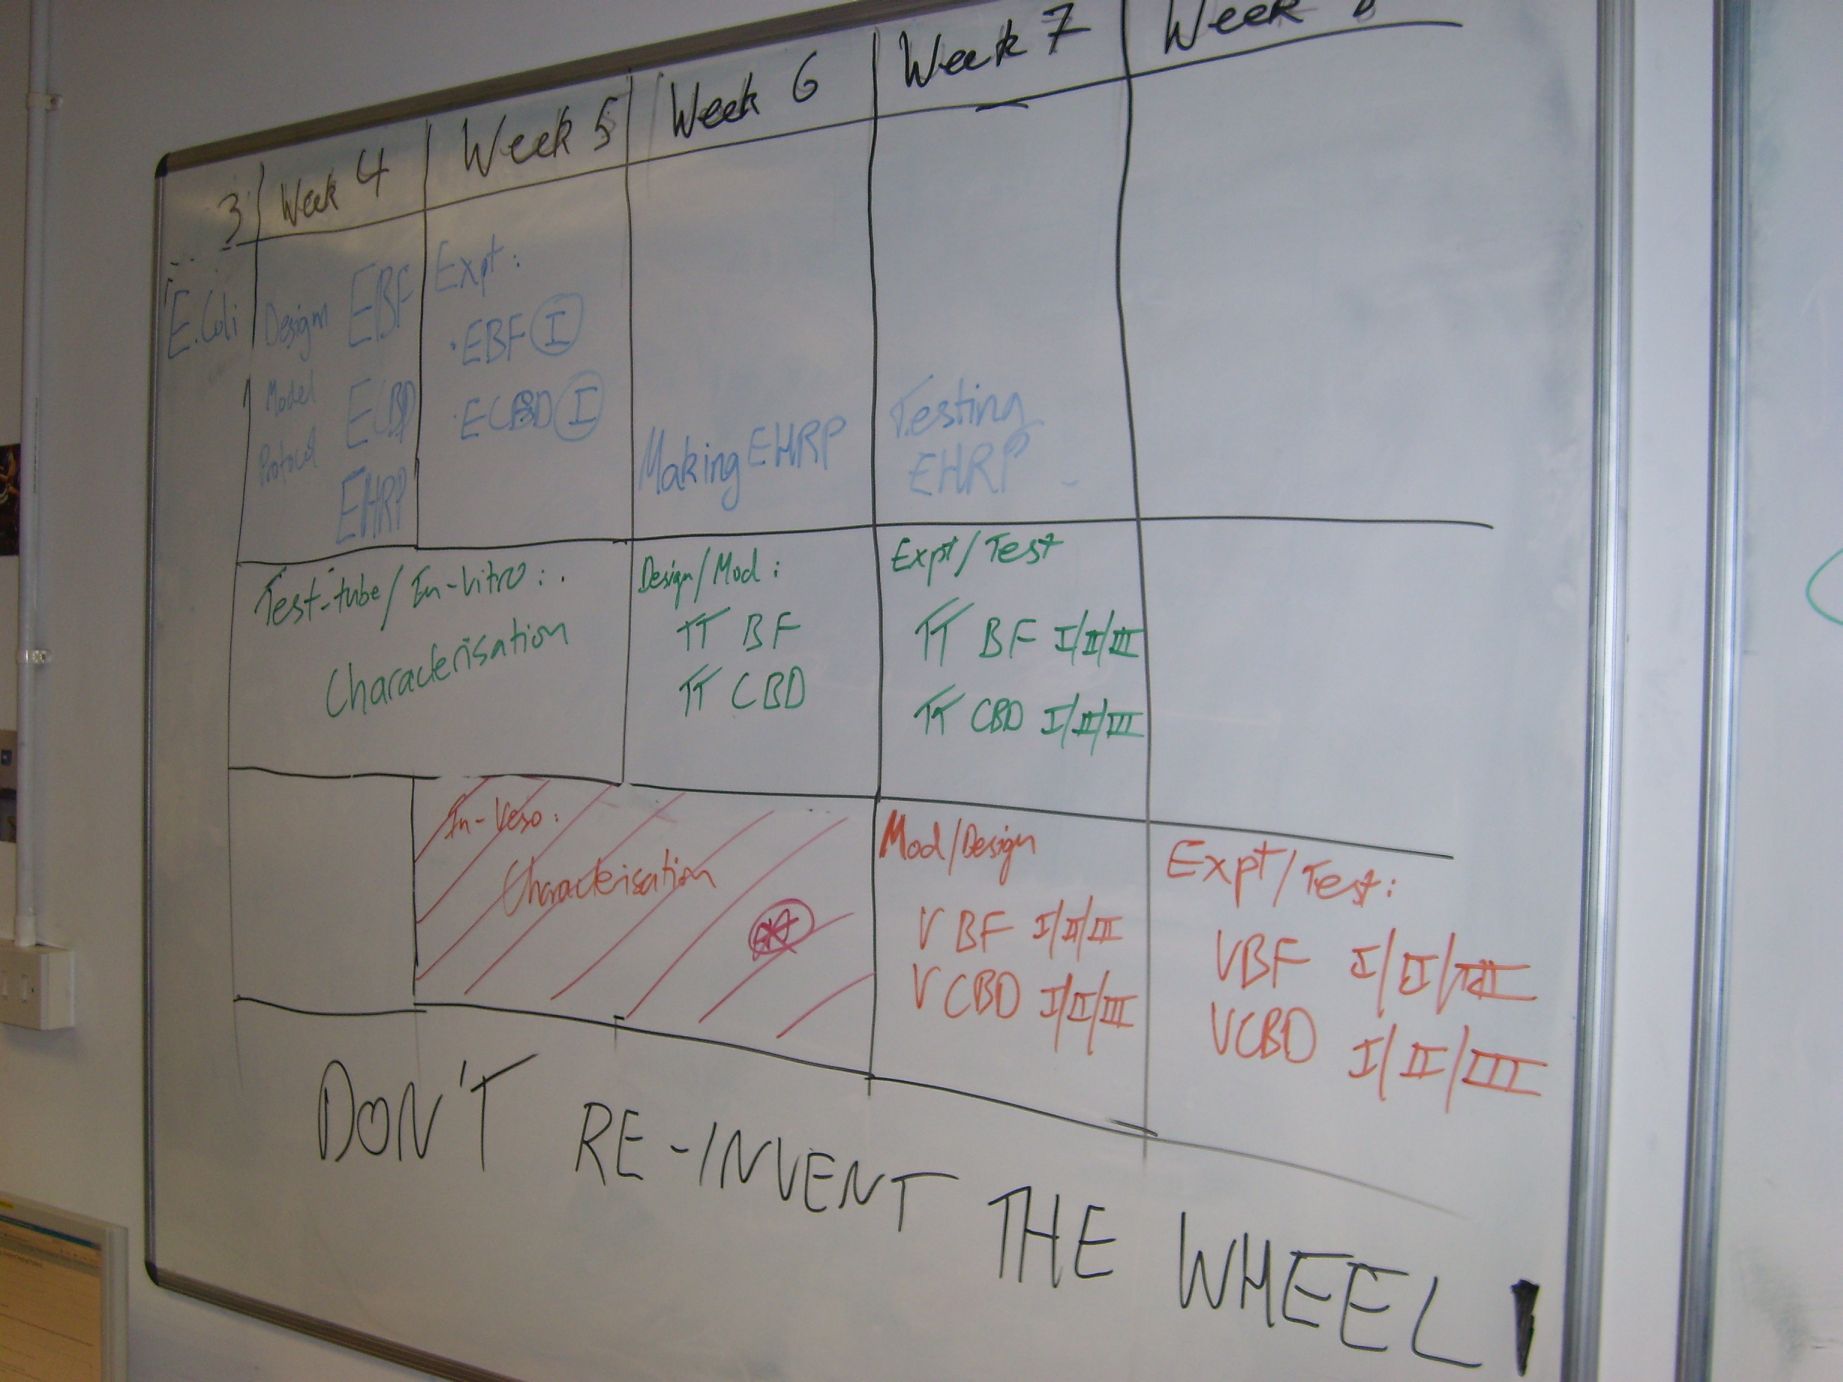 3 Week 4 Week 5 Week 6 Week 7 Week
E.Coli
Design EBF
Model ECBD
Protocol EHRP
Expt:
· EBF I
· ECBD I
Making EHRP
Testing
EHRP
Test-tube/In-Vitro:
Characterisation
Design/Mod:
TT BF
TT CBD
Expt/Test
TT BF I/II/III
TT CBD I/II/III
In-Veso:
Characterisation
Mod/Design
V BF I/II/III
V CBD I/II/III
Expt/Test:
VBF I/II/III
VCBD I/II/III
DON'T RE-INVENT THE WHEEL!